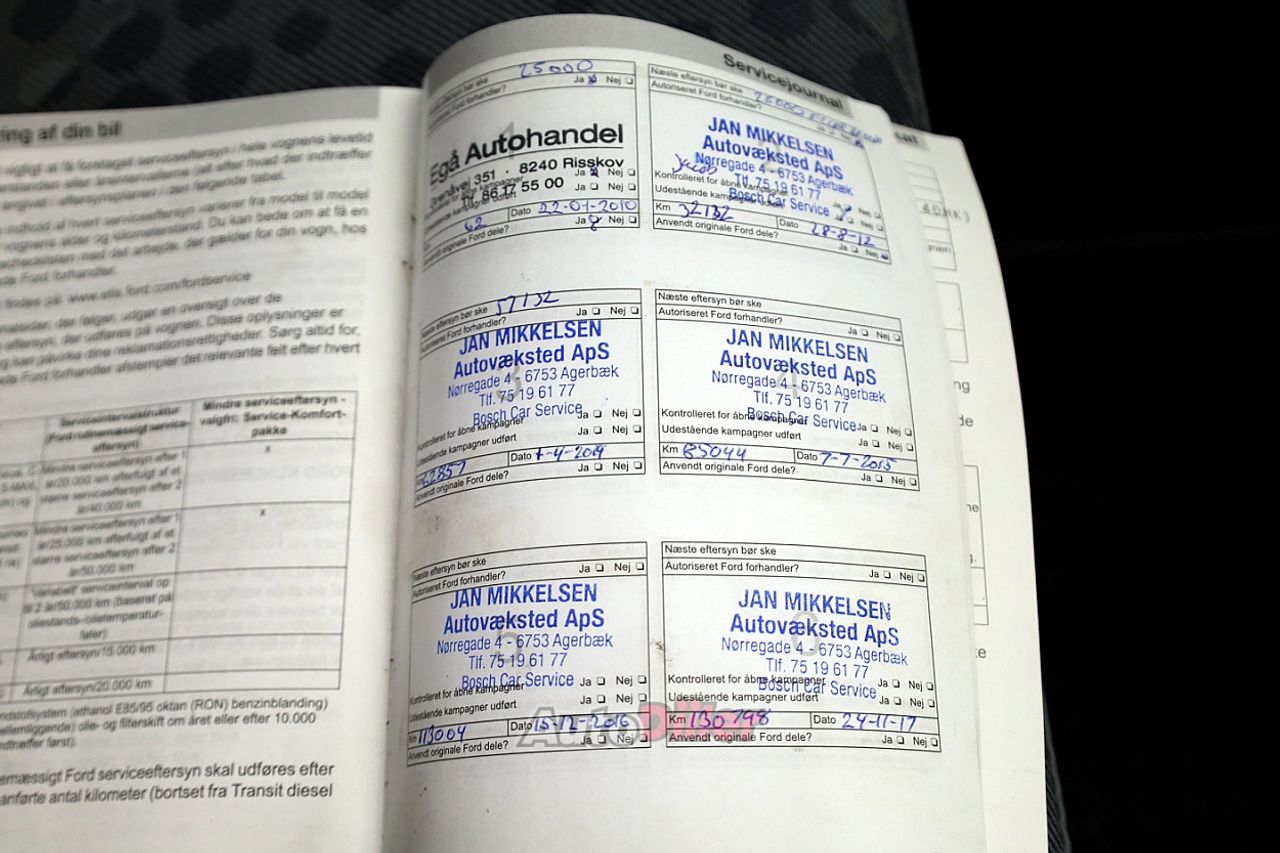 ring af din bil
vigtigt at få foretaget serviceeftersyn i hele vognens levetid
indhold af hvert serviceeftersyn varierer fra model til model
vognens alder og kilometerstand. Du kan bede om at få en
checklisten med det arbejde, der gælder for din vogn, hos
Ford forhandler.
findes på: www.etis.ford.com/fordservice
der følger, udgør en oversigt over de
syn, der udføres på vognen. Disse oplysninger er
kan påvirke dine reklamationsrettigheder. Sørg altid for,
de Ford forhandler afstempler det relevante felt efter hvert
Serviceintervalstruktur
(Ford rutinemæssigt service-
eftersyn)
Mindre serviceeftersyn -
valgfri: Service-Komfort-
pakke
Mindre serviceeftersyn efter 1
år/20.000 km efterfulgt af et
større serviceeftersyn efter 2
år/40.000 km
x
Mindre serviceeftersyn efter 1
år/25.000 km efterfulgt af et
større serviceeftersyn efter 2
år/50.000 km
x
"Variabelt" serviceinterval op
til 2 år/50.000 km (baseret på
oliestands-/olietemperatur-
føler)
Årligt eftersyn/15.000 km
Årligt eftersyn/20.000 km
ndstofsystem (ethanol E85/95 oktan (RON) benzinblanding)
ellemliggende) olie- og filterskift om året eller efter 10.000
ndtræffer først).
emæssigt Ford serviceeftersyn skal udføres efter
anførte antal kilometer (bortset fra Transit diesel
Servicejournal
Næste eftersyn bør ske 25000
Autoriseret Ford forhandler? Ja Nej
Egå Autohandel
Grenåvej 351 · 8240 Risskov
Tlf. 86 17 55 00
Ja Nej
Ja Nej
62 Dato 22-01-2010
Anvendt originale Ford dele? Ja Nej
2
Næste eftersyn bør ske
Autoriseret Ford forhandler? Ja Nej
JAN MIKKELSEN
Autovæksted ApS
Nørregade 4 - 6753 Agerbæk
Tlf. 75 19 61 77
Bosch Car Service
Jacob
Kontrolleret for åbne kampagner Ja Nej
Udestående kampagner udført Ja Nej
Km 32132 Dato 28-8-12
Anvendt originale Ford dele? Ja Nej
3
Næste eftersyn bør ske 57132
Autoriseret Ford forhandler? Ja Nej
JAN MIKKELSEN
Autovæksted ApS
Nørregade 4 - 6753 Agerbæk
Tlf. 75 19 61 77
Bosch Car Service
Kontrolleret for åbne kampagner Ja Nej
Udestående kampagner udført Ja Nej
62857 Dato
Anvendt originale Ford dele? Ja Nej
4
Næste eftersyn bør ske
Autoriseret Ford forhandler? Ja Nej
JAN MIKKELSEN
Autovæksted ApS
Nørregade 4 - 6753 Agerbæk
Tlf. 75 19 61 77
Bosch Car Service
Kontrolleret for åbne kampagner Ja Nej
Udestående kampagner udført Ja Nej
Km 85044 Dato 7-7-2015
Anvendt originale Ford dele? Ja Nej
5
Næste eftersyn bør ske
Autoriseret Ford forhandler? Ja Nej
JAN MIKKELSEN
Autovæksted ApS
Nørregade 4 - 6753 Agerbæk
Tlf. 75 19 61 77
Bosch Car Service
Kontrolleret for åbne kampagner Ja Nej
Udestående kampagner udført Ja Nej
Km 113004 Dato 15-12-2016
Anvendt originale Ford dele? Ja Nej
6
Næste eftersyn bør ske
Autoriseret Ford forhandler? Ja Nej
JAN MIKKELSEN
Autovæksted ApS
Nørregade 4 - 6753 Agerbæk
Tlf. 75 19 61 77
Bosch Car Service
Kontrolleret for åbne kampagner Ja Nej
Udestående kampagner udført Ja Nej
Km 130798 Dato 24-11-17
Anvendt originale Ford dele? Ja Nej